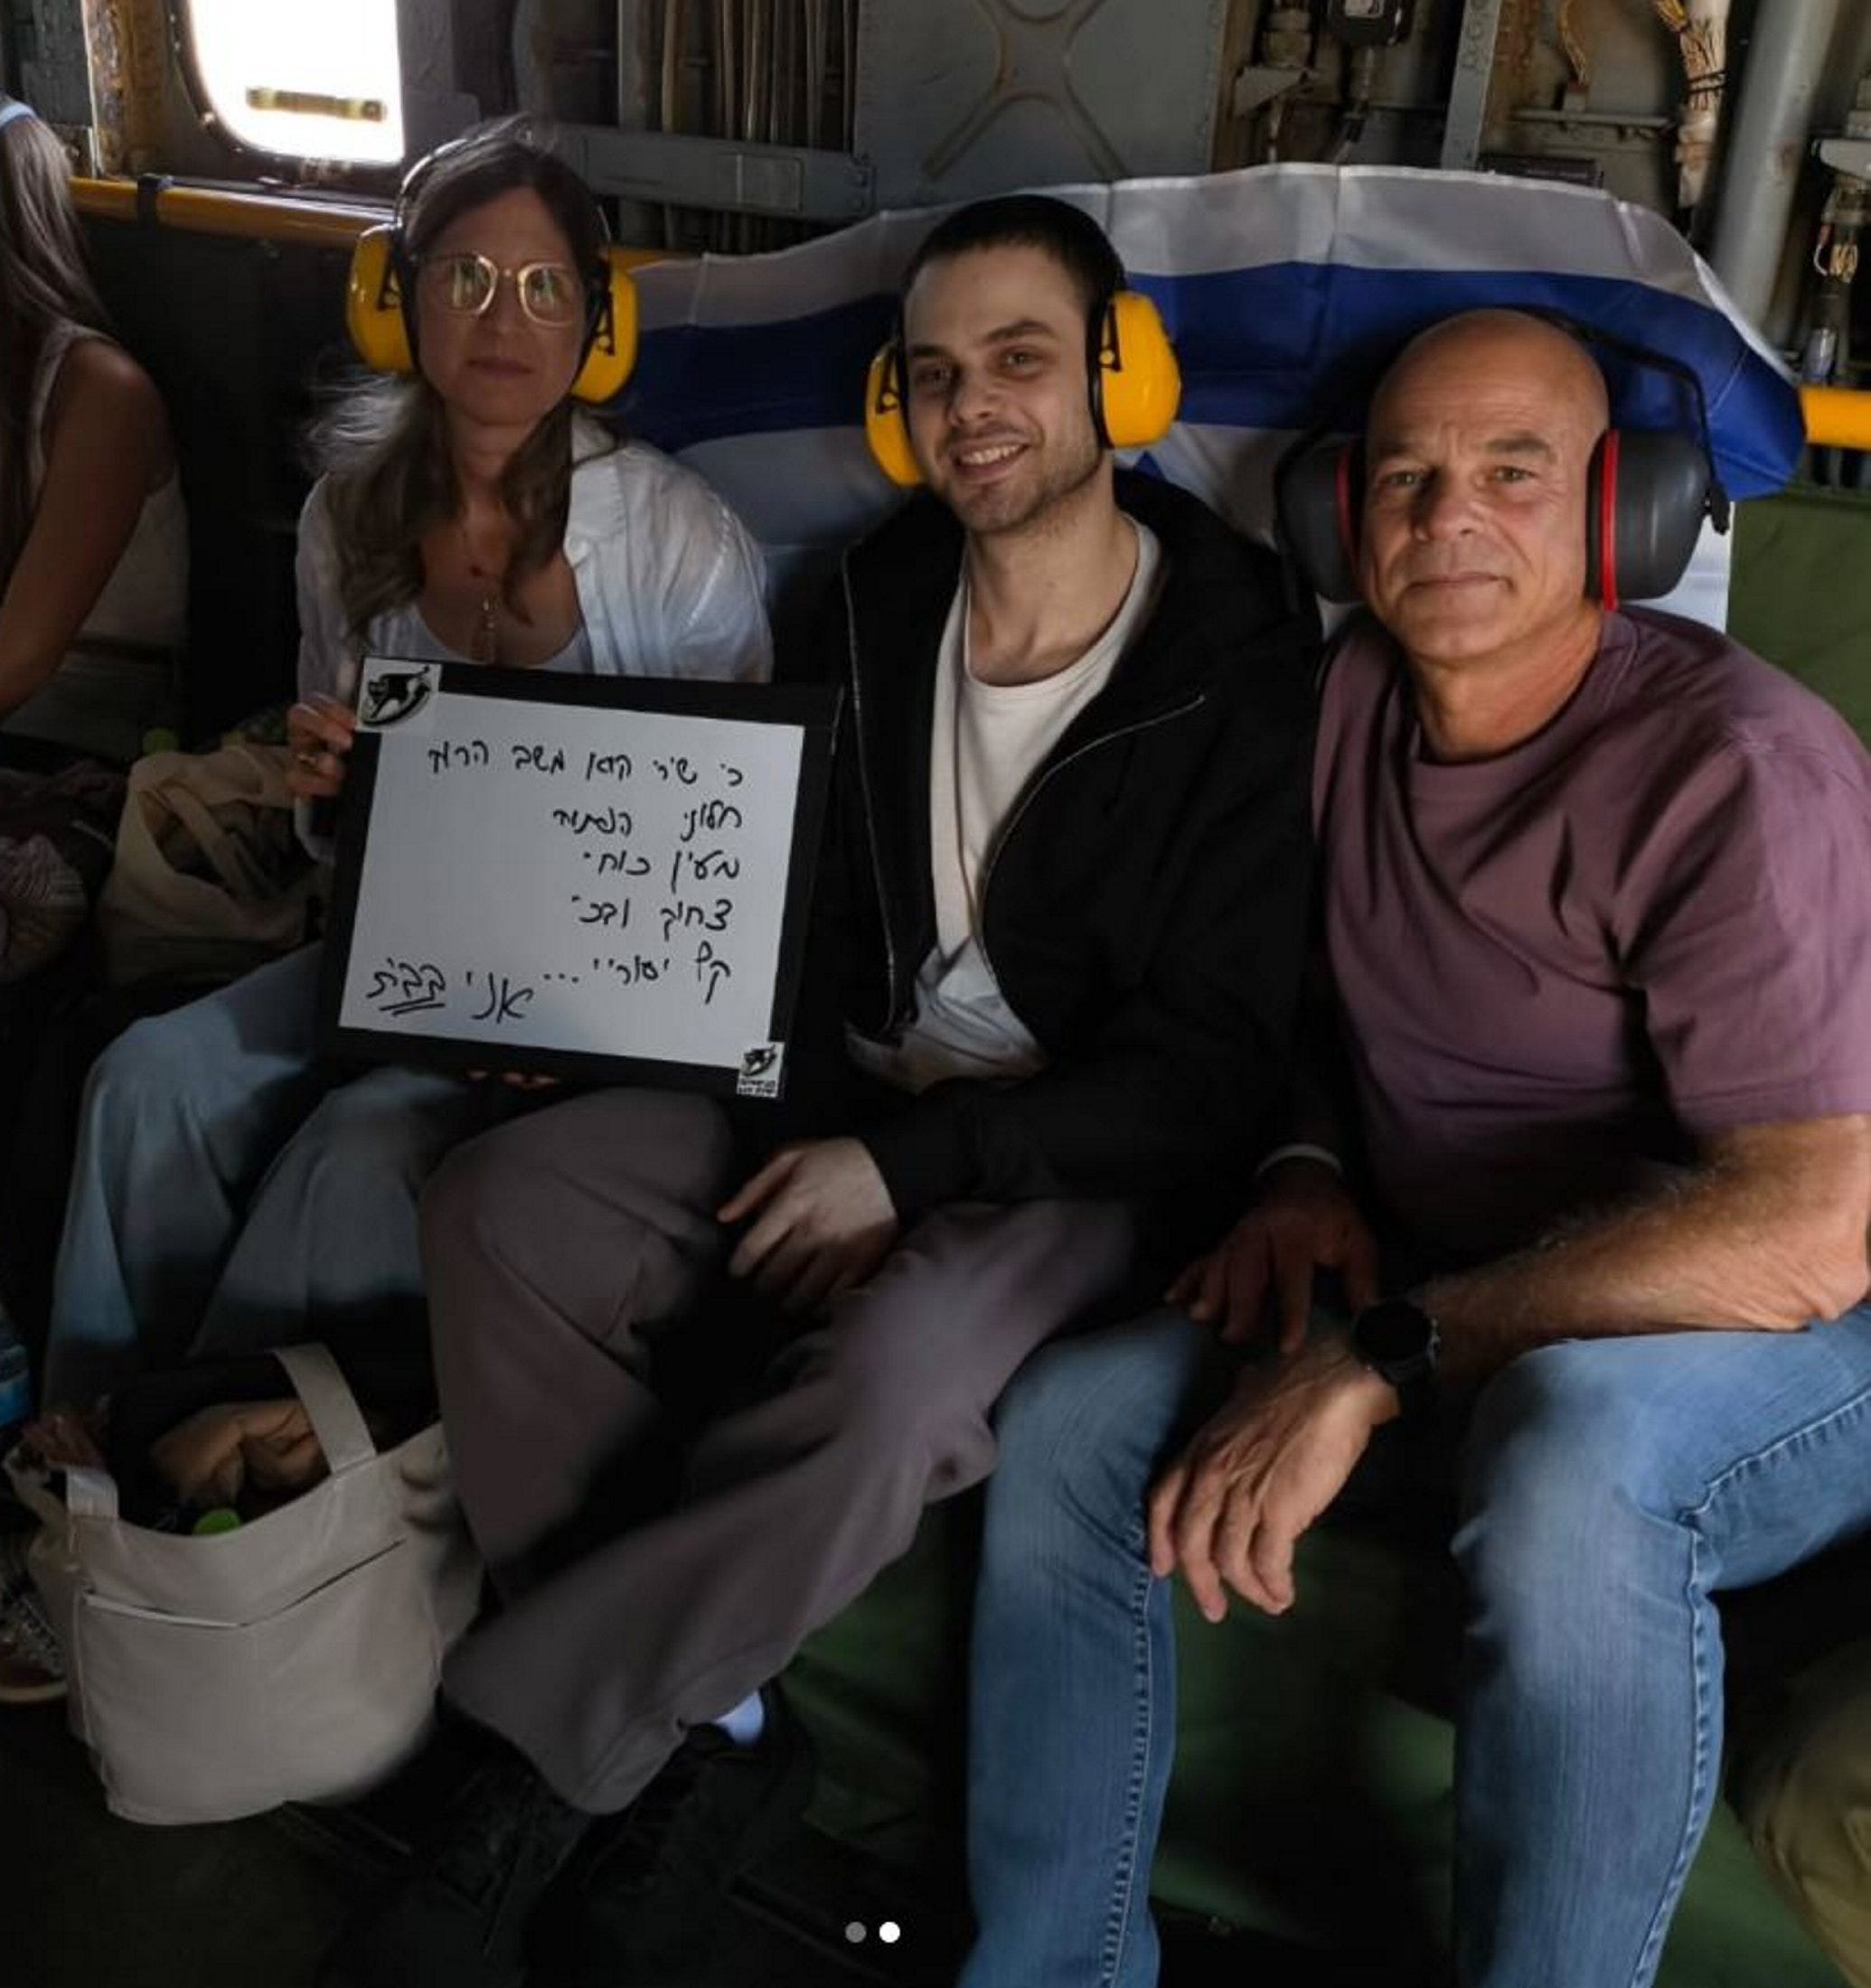 כי שירי הוא משב הרוח
חלוני הפתוח
מעין כוחי
צחוק ובכי
קץ יסוריי... אני בבית